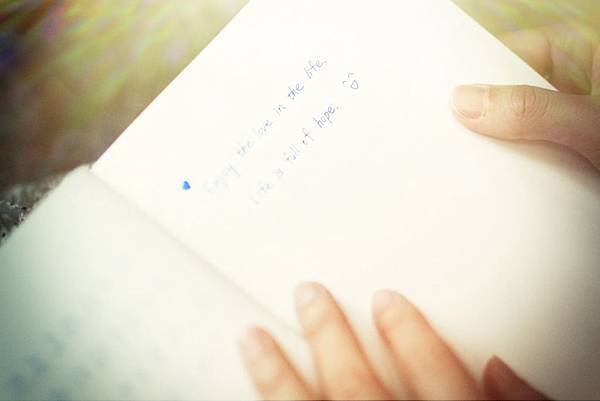 Enjoy the love in the life.
Life is full of hope.